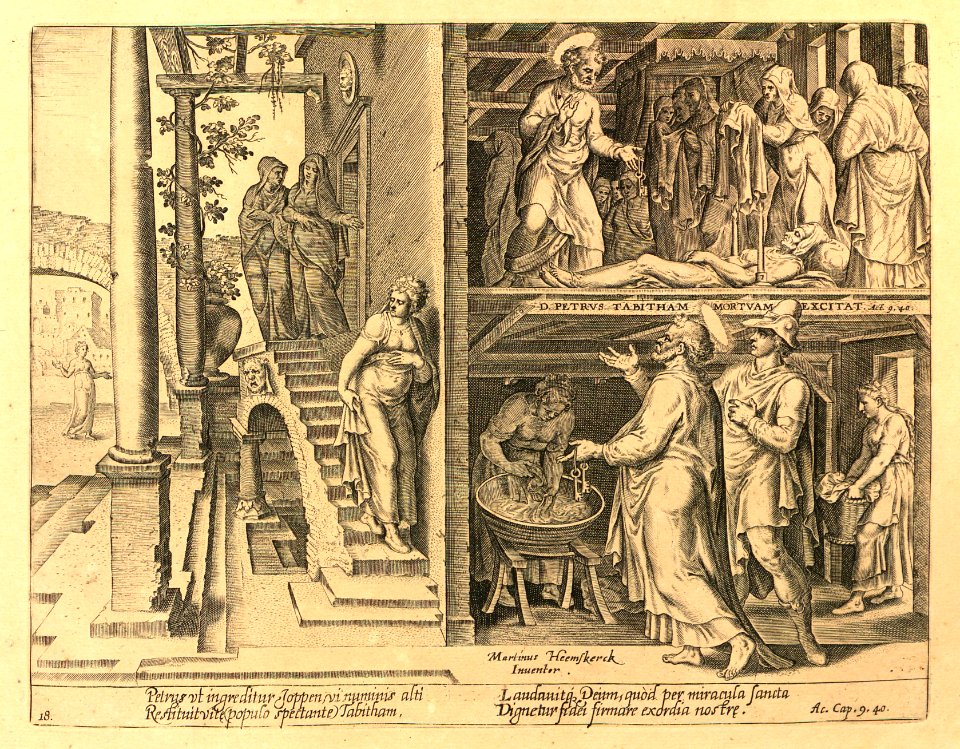 D. PETRVS TABITHAM MORTVAM EXCITAT. Act. 9. 40.
Martinus Heemskerck
Inventor.
Petrus vt ingreditur Joppen, vi numinis alti
Restituit vitę populo spectante Tabitham,
Laudauitq́ Deum, quòd per miracula sancta
Dignetur fidei firmare exordia nostrę.
Ac. Cap. 9. 40.
18.